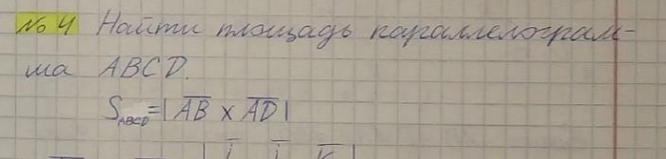 № 4 Найти площадь параллелограм-
ма ABCD.
S_ABCD = | AB x AD |
i j k